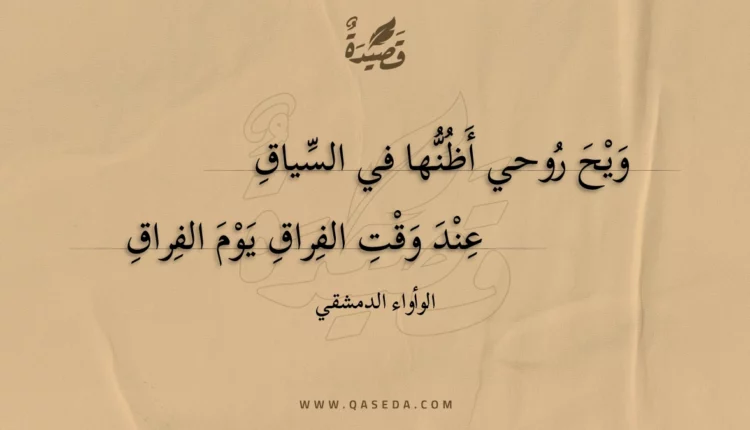 قَصِيدَةٌ
وَيْحَ رُوحي أَظُنُّها في السِّياقِ
عِنْدَ وَقْتِ الفِراقِ يَوْمَ الفِراقِ
الوأواء الدمشقي
WWW.QASEDA.COM